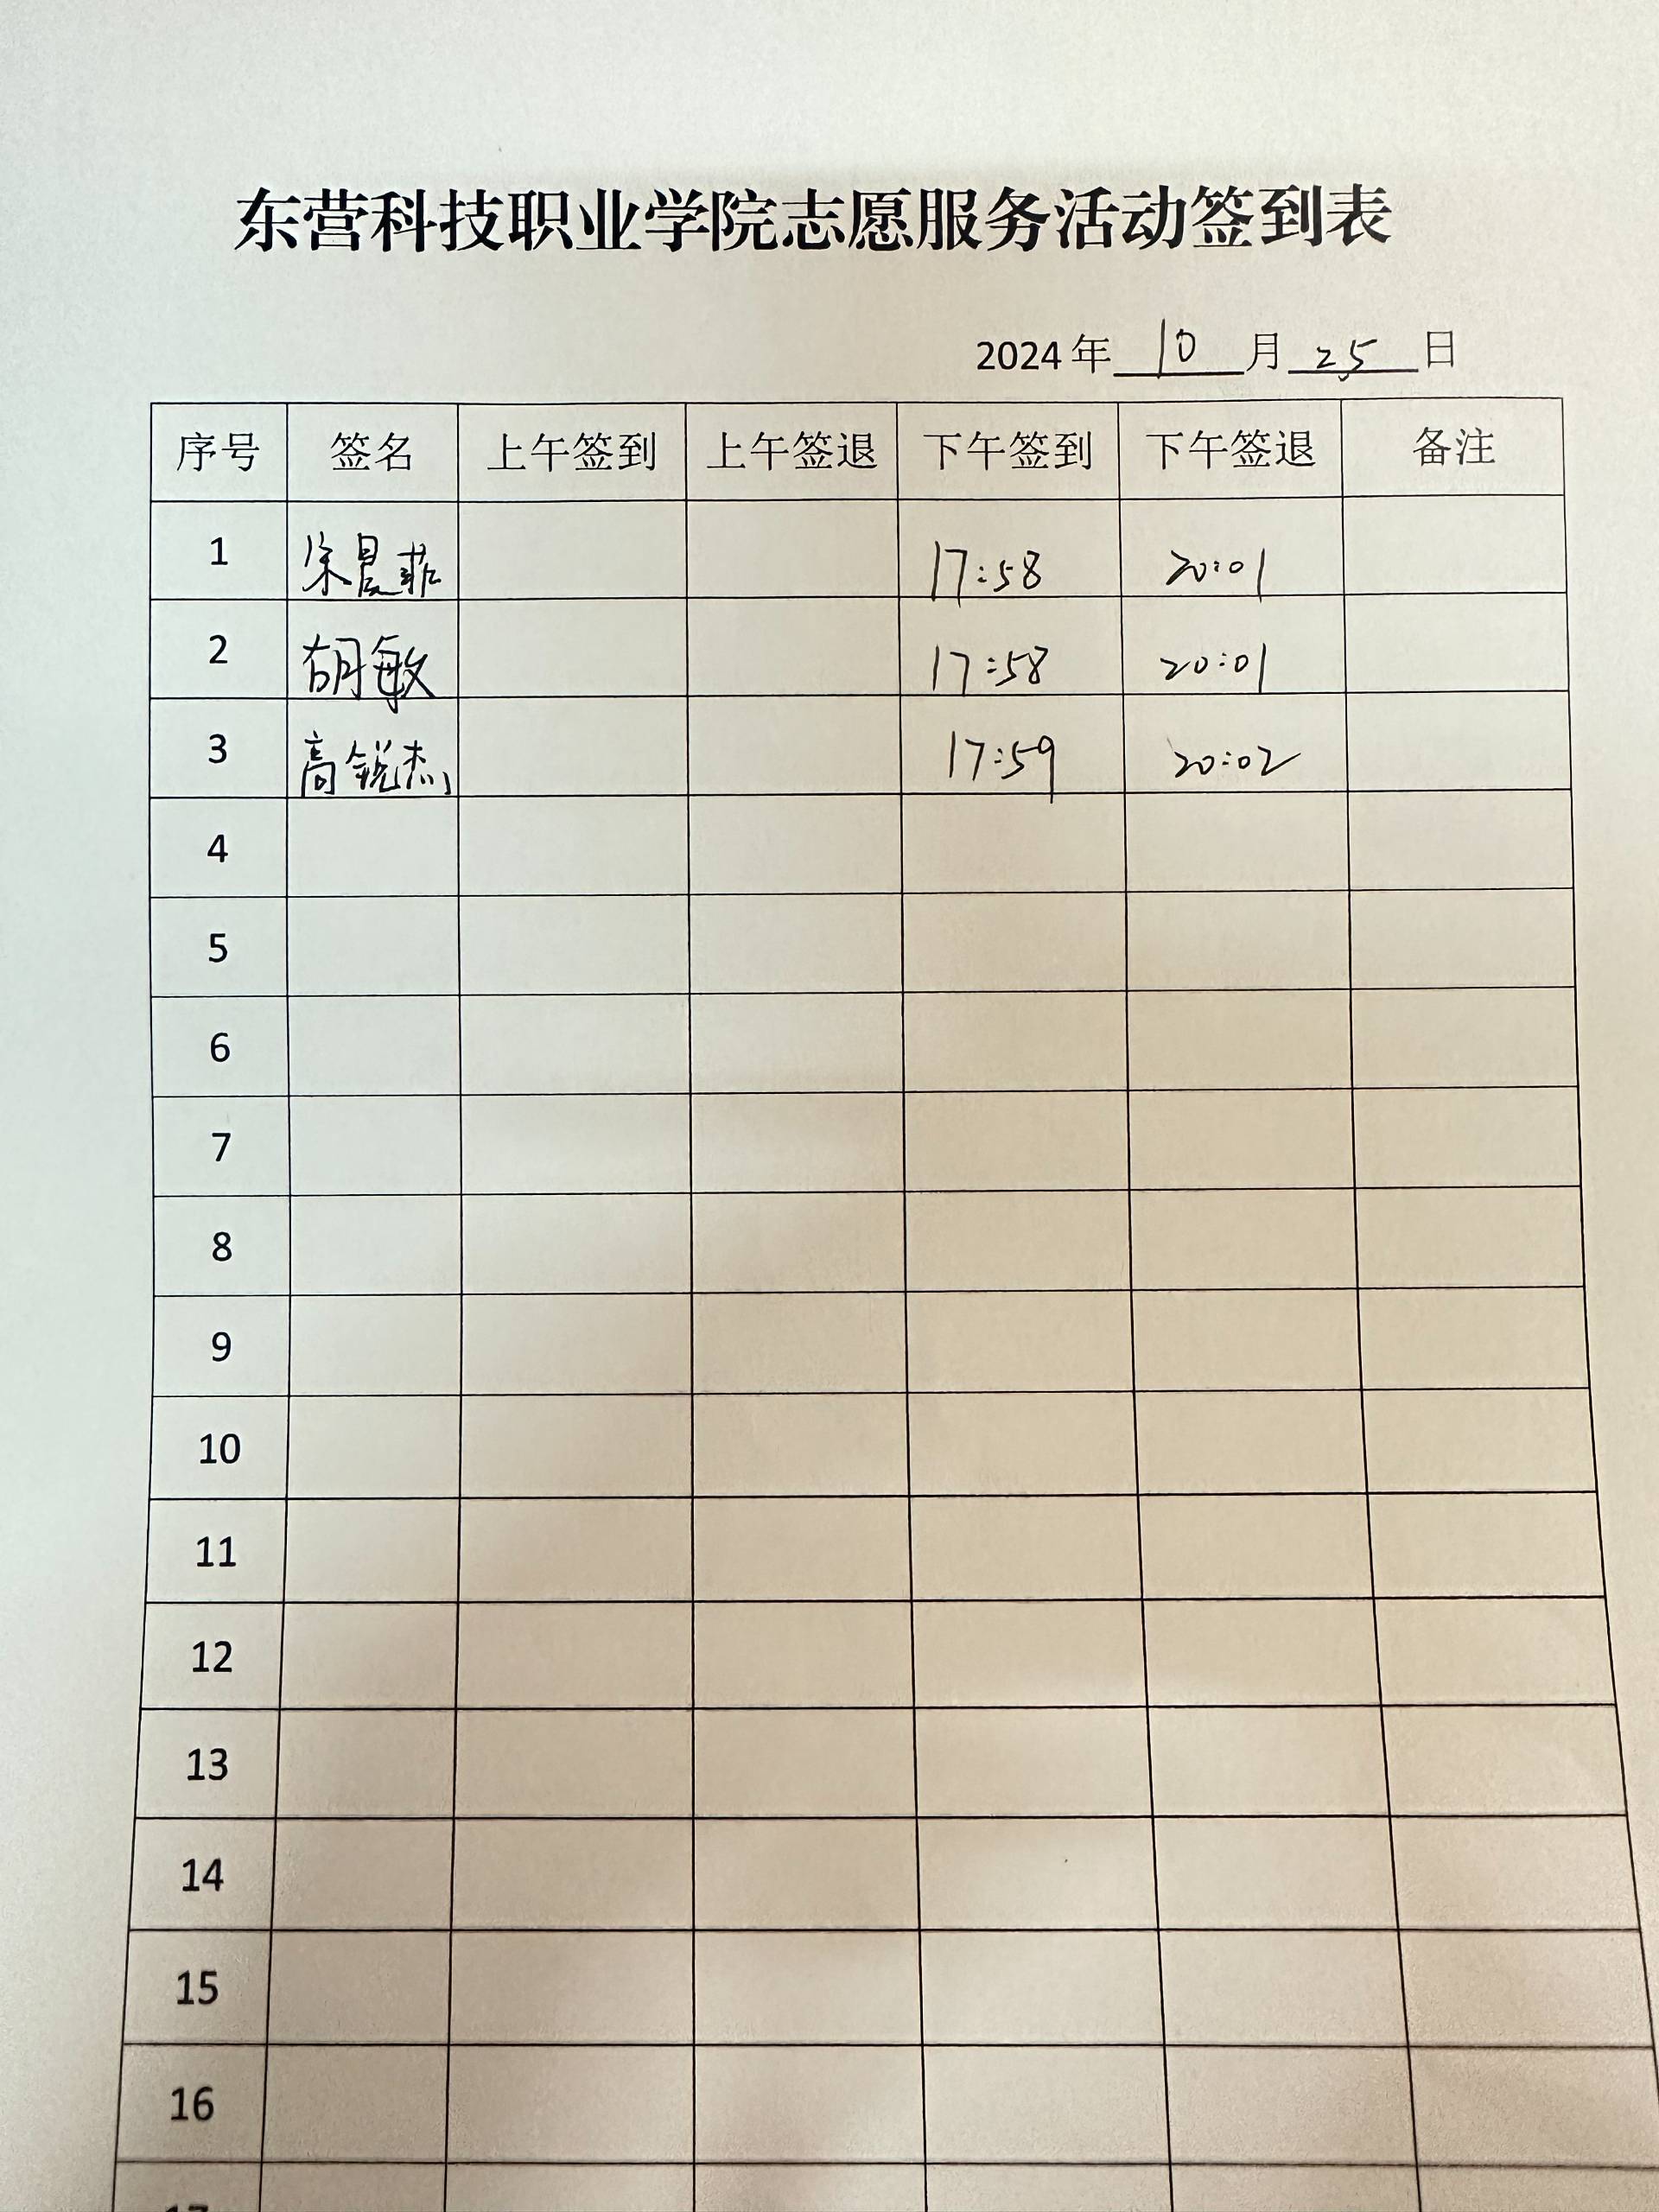 东营科技职业学院志愿服务活动签到表
2024年 10 月 25 日
序号 签名 上午签到 上午签退 下午签到 下午签退 备注
1 徐晨菲 17:58 20:01
2 胡敏 17:58 20:01
3 高锐杰 17:59 20:02
4
5
6
7
8
9
10
11
12
13
14
15
16
17